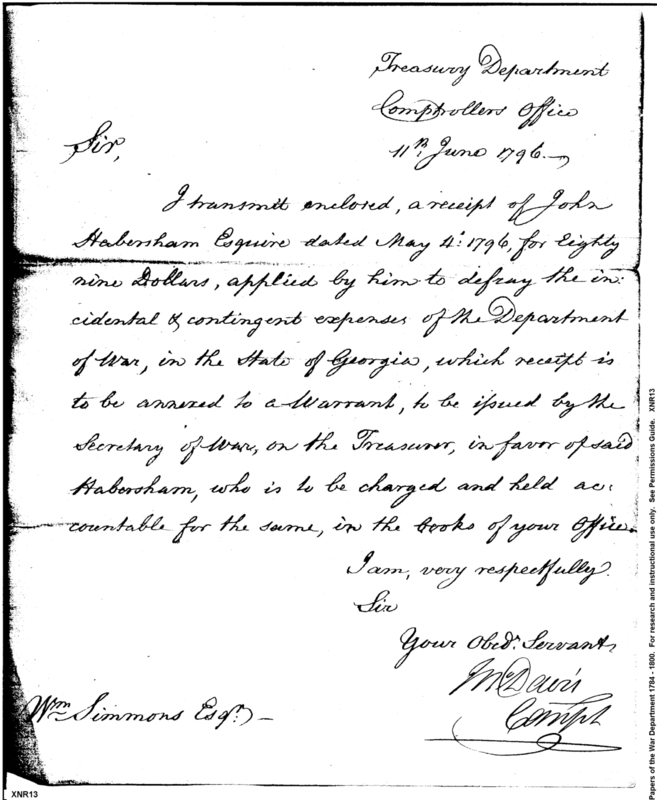 Treasury Department
Comptrollers Office
11th June 1796.
Sir,
I transmit enclosed, a receipt of John
Habersham Esquire dated May 4: 1796, for Eighty
nine Dollars, applied by him to defray the in:
cidental & contingent expenses of the Department
of War, in the State of Georgia, which receipt is
to be annexed to a Warrant, to be issued by the
Secretary of War, on the Treasurer, in favor of said
Habersham, who is to be charged and held ac:
countable for the same, in the books of your Office.
I am, very respectfully.
Sir
Your Obedt. Servant,
Davis
Compt
Wm Simmons Esqr.
XNR13
Papers of the War Department 1784 - 1800. For research and instructional use only. See Permissions Guide. XNR13